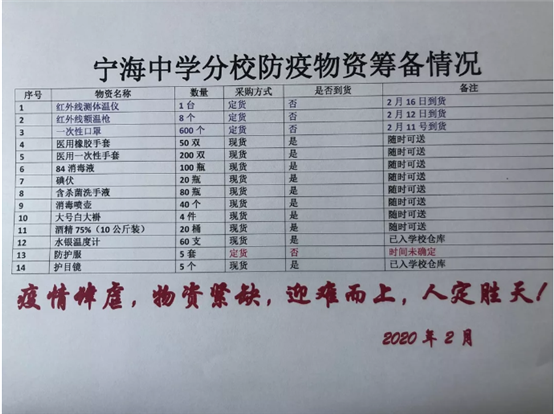 宁海中学分校防疫物资筹备情况
序号 物资名称 数量 采购方式 是否到货 备注
1 红外线测体温仪 1台 定货 否 2月16日到货
2 红外线额温枪 8个 定货 否 2月12日到货
3 一次性口罩 600个 定货 否 2月11号到货
4 医用橡胶手套 50双 现货 是 随时可送
5 医用一次性手套 200双 现货 是 随时可送
6 84消毒液 100瓶 现货 是 随时可送
7 碘伏 20瓶 现货 是 随时可送
8 含杀菌洗手液 80瓶 现货 是 随时可送
9 消毒喷壶 40个 现货 是 随时可送
10 大号白大褂 4件 现货 是 随时可送
11 酒精75%（10公斤装） 20桶 现货 是 随时可送
12 水银温度计 60支 现货 是 已入学校仓库
13 防护服 5套 定货 否 时间未确定
14 护目镜 5个 现货 是 已入学校仓库
疫情肆虐，物资紧缺，迎难而上，人定胜天！
2020年2月